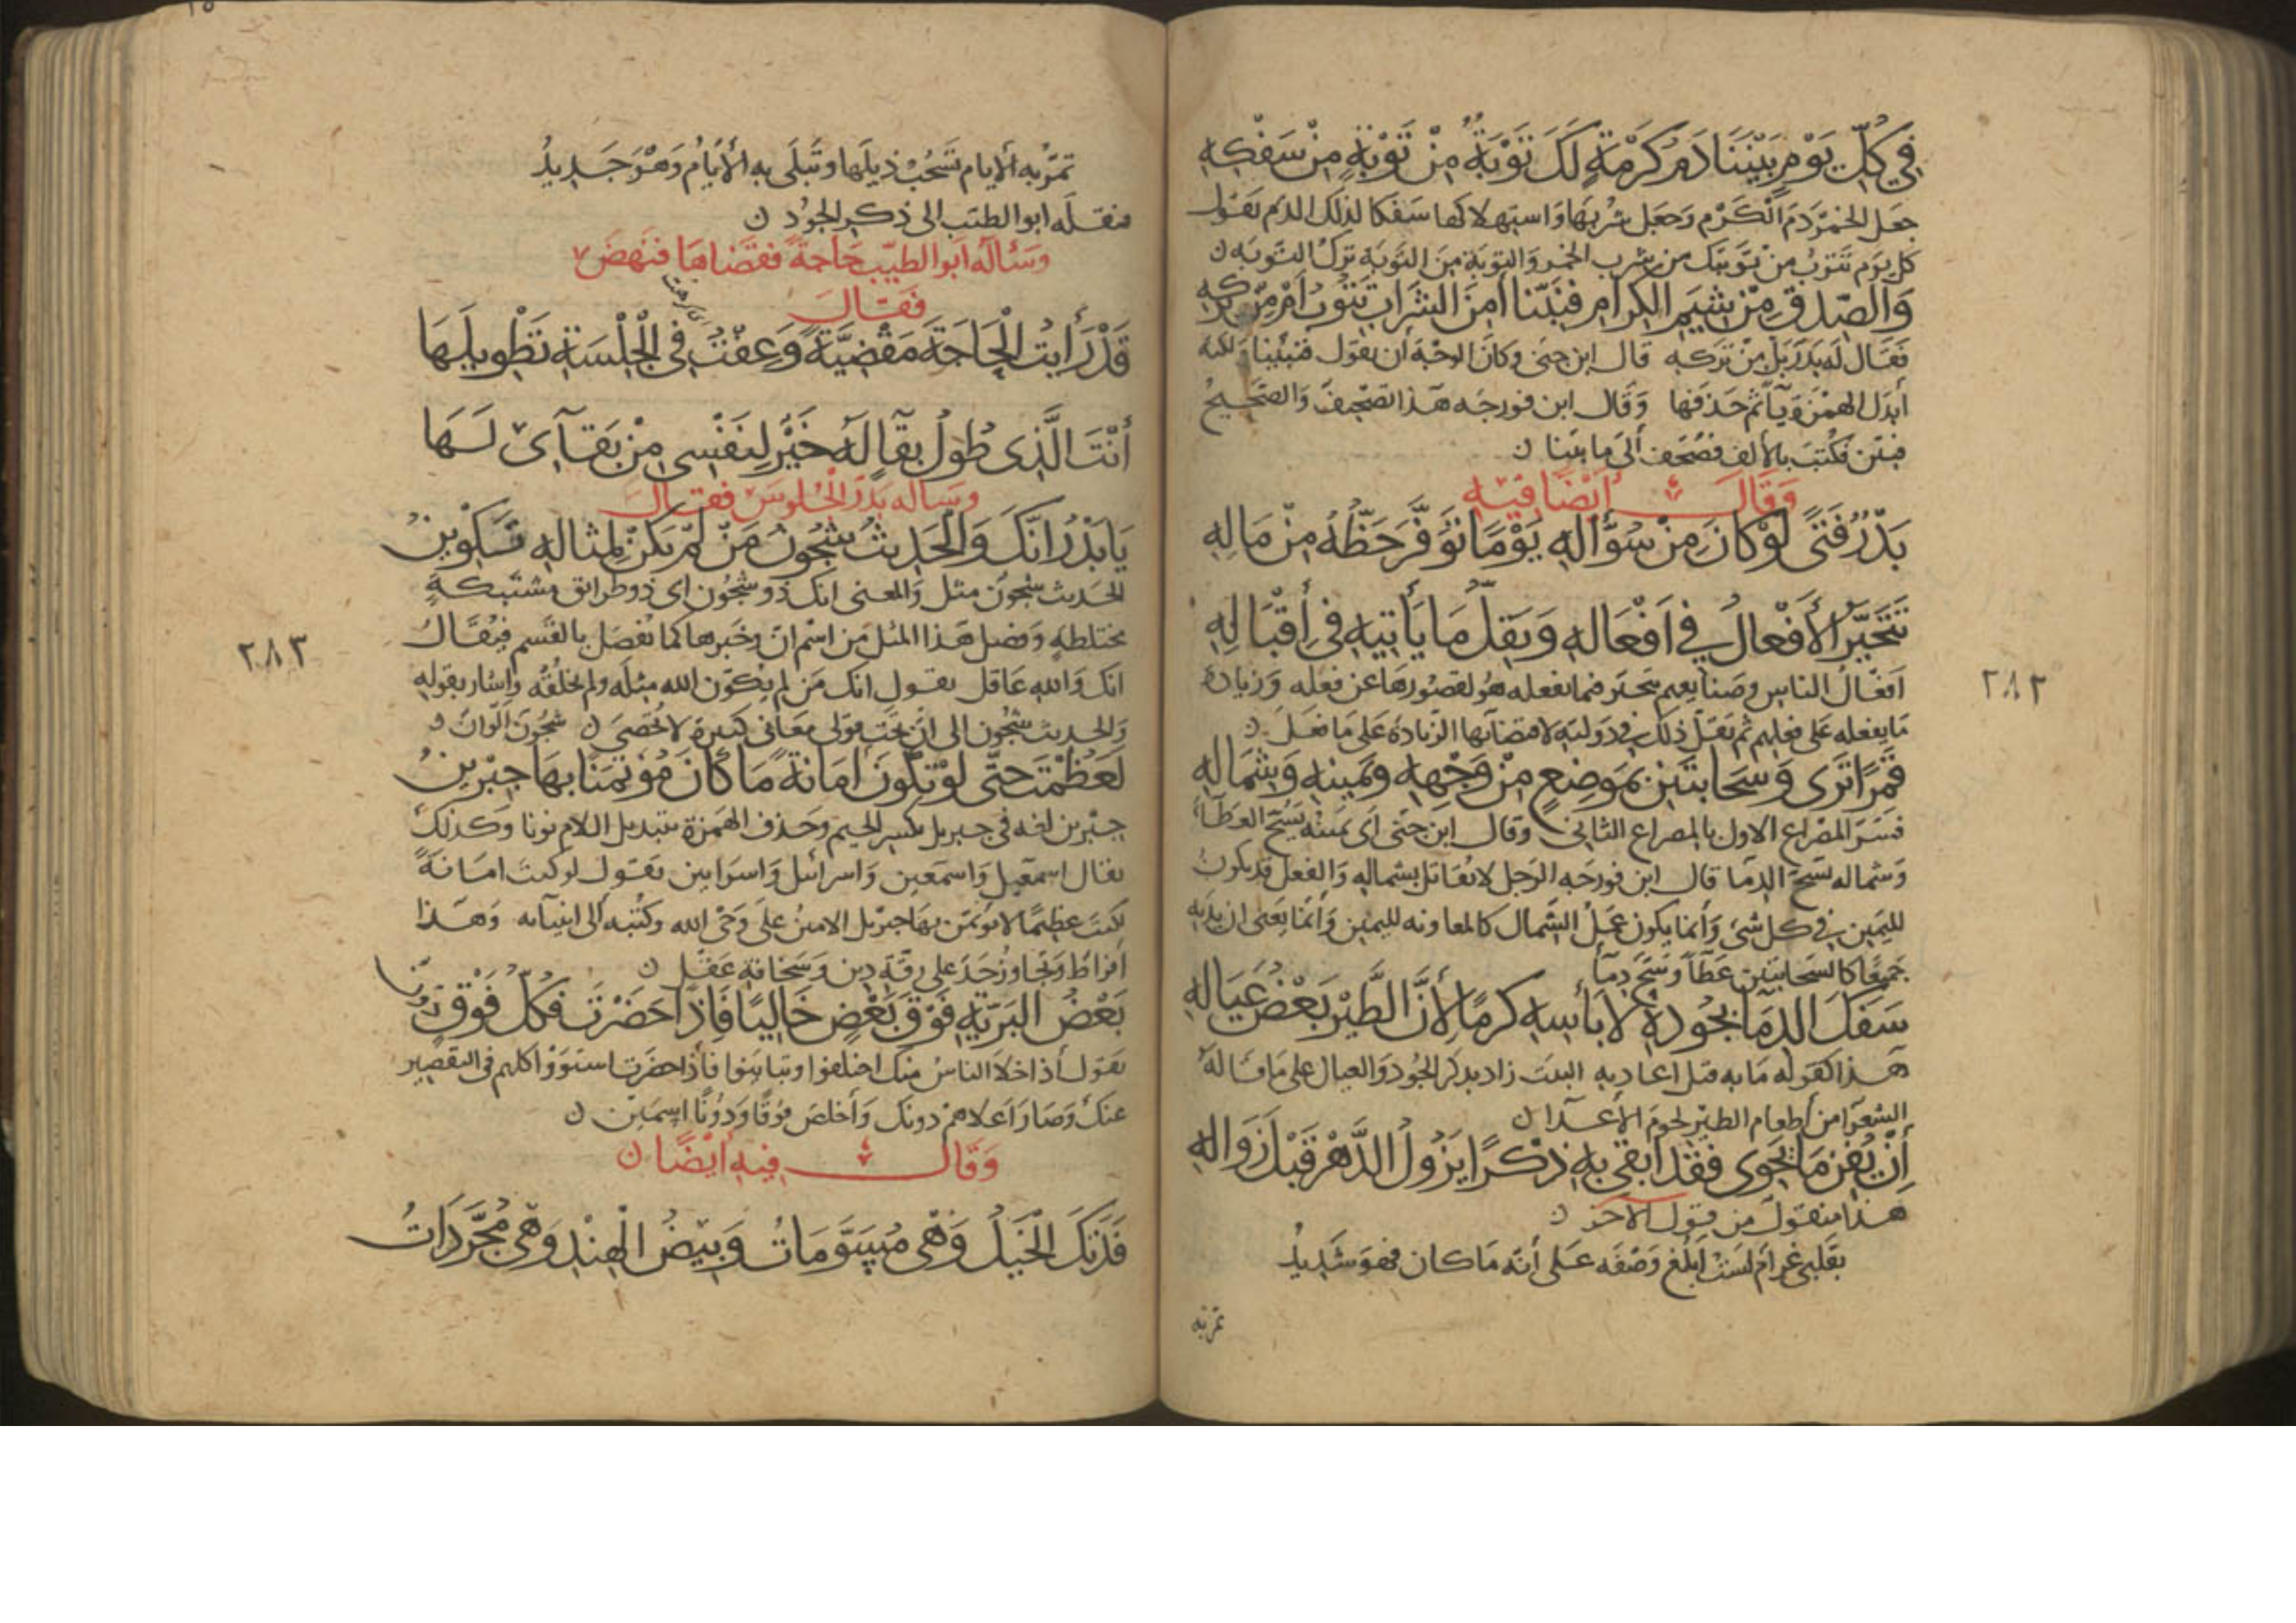 فِي كُلِّ يَوْمٍ بَيْنَنَا دَمُ كَرْمَةٍ لَكَ تَوْبَةٌ مِنْ تَوْبَةٍ مِنْ سَفْكِهِ
جعل الخمر دم الكرم وجعل شربها واستهلاكها سفكا لذلك الدم يقول
كل يوم تتوب من توبتك من شرب الخمر والتوبة من التوبة ترك التوبه ن
وَالصِّدْقُ مِنْ شِيَمِ الْكِرَامِ فَنَبِّنَا أَمِنَ الشَّرَابِ تَتُوبُ أَمْ مِنْ تركه
فقال له بدر بل من تركه قال ابن جنى وكان الوجه ان يقول فنبئنا ولكنه
ابدل الهمزة ياً ثم حذفها وقال ابن فورجه هذا تصحيف والصحيح
فبين فكتب بالألف فصحف الى ما بينا ن
وَقَالَ أَيْضًا فِيْهِ
بَدْرٌ فَتًى لَوْ كَانَ مِنْ سُؤَّالِهِ يَوْمًا تَوَفَّرَ حَظُّهُ مِنْ مَالِهِ
تَتَحَيَّرُ الْأَفْعَالُ فِي أَفْعَالِهِ وَيَقِلُّ مَا يَأْتِيهِ فِي إِقْبَالِهِ
افعال الناس وصنايعهم تتحير فيما يفعله هو لقصورها عن فعله وزيادة
ما يفعله على فعلهم ثم يقل ذلك في دولته لاقتضائها الزيادة على ما فعل ن
قَمَرًا تَرَى وَسَحَابَتَيْنِ بِمَوْضِعٍ مِنْ وَجْهِهِ وَيَمِينِهِ وَشِمَالِهِ
فسر المصراع الاول بالمصراع الثاني وقال ابن جنى اى يمينه تسح العطاء
وشماله تسح الدما قال ابن فورجه الرجل لا يقاتل بشماله والفعل قد يكون
لليمين في كل شى وانما يكون عمل الشمال كالمعاونه لليمين وانما يعنى ان يديه
جميعًا كالسحابتين عطآ وسح دمآ
سَفَكَ الدِّمَآ بِجُودِهِ لَا بَأْسِهِ كَرَمًا لِأَنَّ الطَّيْرَ بَعْضُ عِيَالِهِ
هذا كقوله ما به قتل اعاديه البيت زاد بذكر الجود والعيال على ما قاله
الشعرآ من اطعام الطير لحوم الأعدا ن
إِنْ يُفْنِ مَا يَحْوِى فَقَدْ أَبْقَى بِهِ ذِكْرًا يَزُولُ الدَّهْرُ قَبْلَ زَوَالِهِ
هذا منقول من قول الآخر ن
بقلبي غرام لست ابلغ وصفه على أنه ما كان فهو شديد
تمر به
٢٨٢
تمرّ به الأيام تسحب ذيلها وتبلى به الأيام وهو جديد
فنقله ابو الطيب الى ذكر الجود ن
وسئاله ابو الطيب حاجة فقضاها فنهض
فقال
قَدْ رَأَيْتُ الْحَاجَةَ مَقْضِيَّةً وَعِفْتُ فِي الْجَلْسَةِ تَطْوِيلَهَا
أَنْتَ الَّذِي طُولُ بَقَآ لَهُ خَيْرٌ لِنَفْسِي مِنْ بَقَآئي لَهَا
وساله بدر الجلوس فقال
يَا بَدْرُ إِنَّكَ وَالْحَدِيثُ شُجُونٌ مَنْ لَمْ يَكُنْ لِمِثَالِهِ تَكْوِينُ
الحديث شجون مثل والمعنى انك ذو شجون اى ذو طرائق مشتبكة
مختلطةٍ وفصل هذا المثل بين اسم ان وخبرها كما تفصل بالقسم فيقال
انك والله عاقل يقول انك من لم يكون الله مثله ولم يخلقه واشار بقوله
والحديث شجون الى ان تحت قولى معانى كثيرة لا تحصى ن شجون الوان ن
لَعَظُمْتَ حَتَّى لَوْ تَكُونُ أَمَانَةً مَا كَانَ مُؤْتَمَنًا بِهَا جِبْرِينُ
جبرين لغه في جبريل بكسر الجيم وحذف الهمزة بتبديل اللام نونا وكذلك
يقال اسمعيل واسمعين واسرائيل واسرايين يقول لو كنت امانةً
لكنت عظيمًا لا يؤتمن بها جبريل الامين على وحى الله وكتبه الى انبيآئه وهذا
افراط وتجاوز حد على رقّة دين وسخافة عقل ن
بَعْضُ الْبَرِيَّةِ فَوْقَ بَعْضٍ خَالِيًا فَإِذَا حَضَرْتَ فَكُلُّ فَوْقٍ دُونُ
يقول اذا خلا الناس منك اختلفوا وتباينوا فاذا حضرت استووا كلهم في التقصير
عنك وصار اعلاهم دونك واخلص فوقًا ودونًا اسمين ن
وَقَالَ فِيهِ أَيْضًا ن
فَدَتْكَ الْخَيْلُ وَهْيَ مُسَوَّمَاتٌ وَبِيْضُ الْهِنْدِ وَهْيَ مُجَرَّدَاتُ
٢٨٣